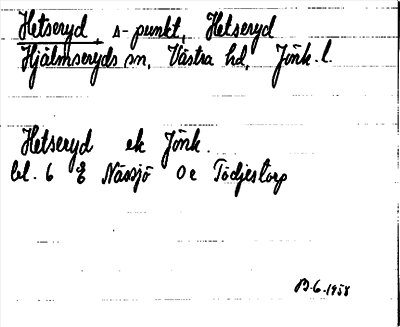 Hetseryd, s-punkt, Hetseryd
Hjälmseryds sn, Västra hd, Jönk. l.
Hetseryd ek Jönk.
bl. 6 E Nässjö 0 e Tödjestorp
B-6-1958